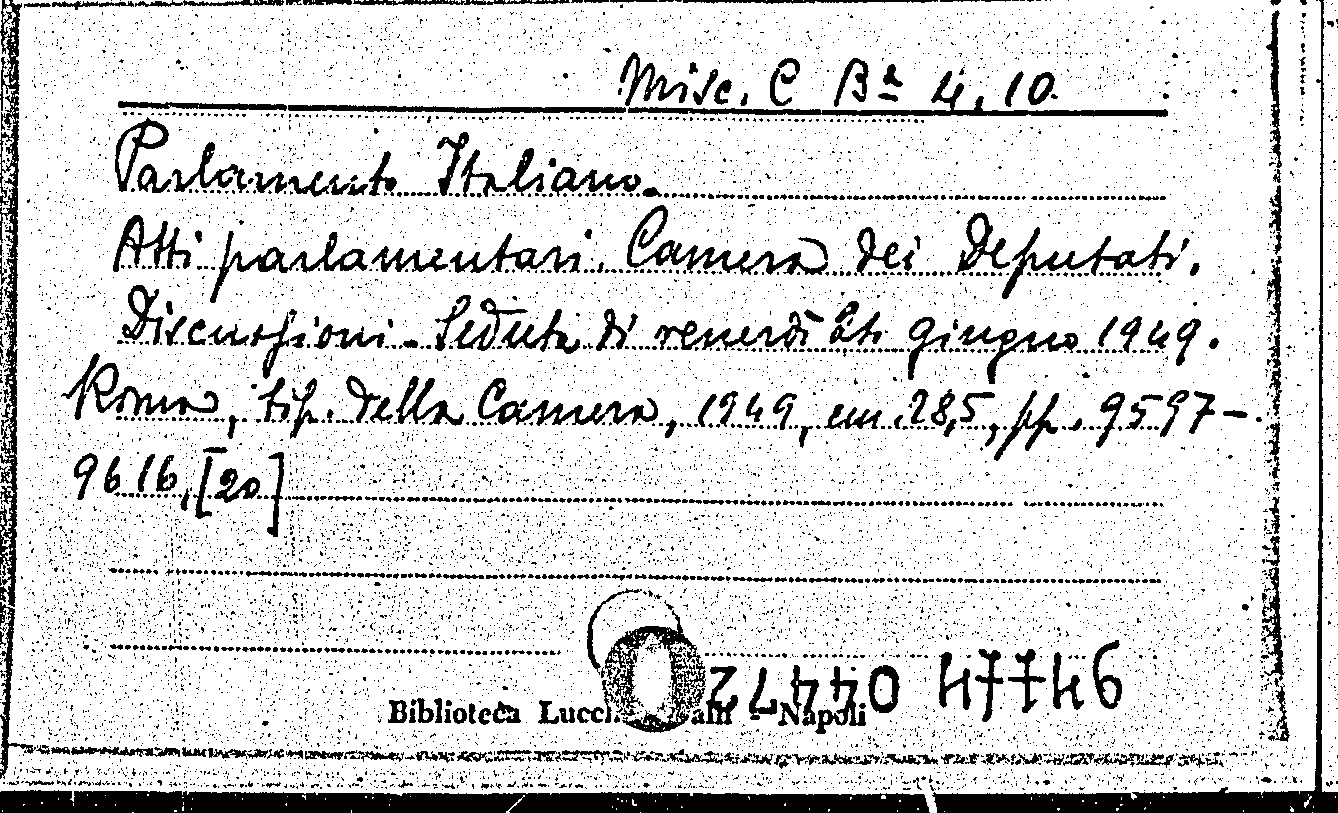 Misc. C Bª 4, 10.
Parlamento Italiano.
Atti parlamentari. Camera dei Deputati.
Discussioni - Seduta di venerdì 24 giugno 1949.
Roma, tip. della Camera, 1949, cm. 28,5, pp. 9597-
9616, [20]
Biblioteca - Napoli